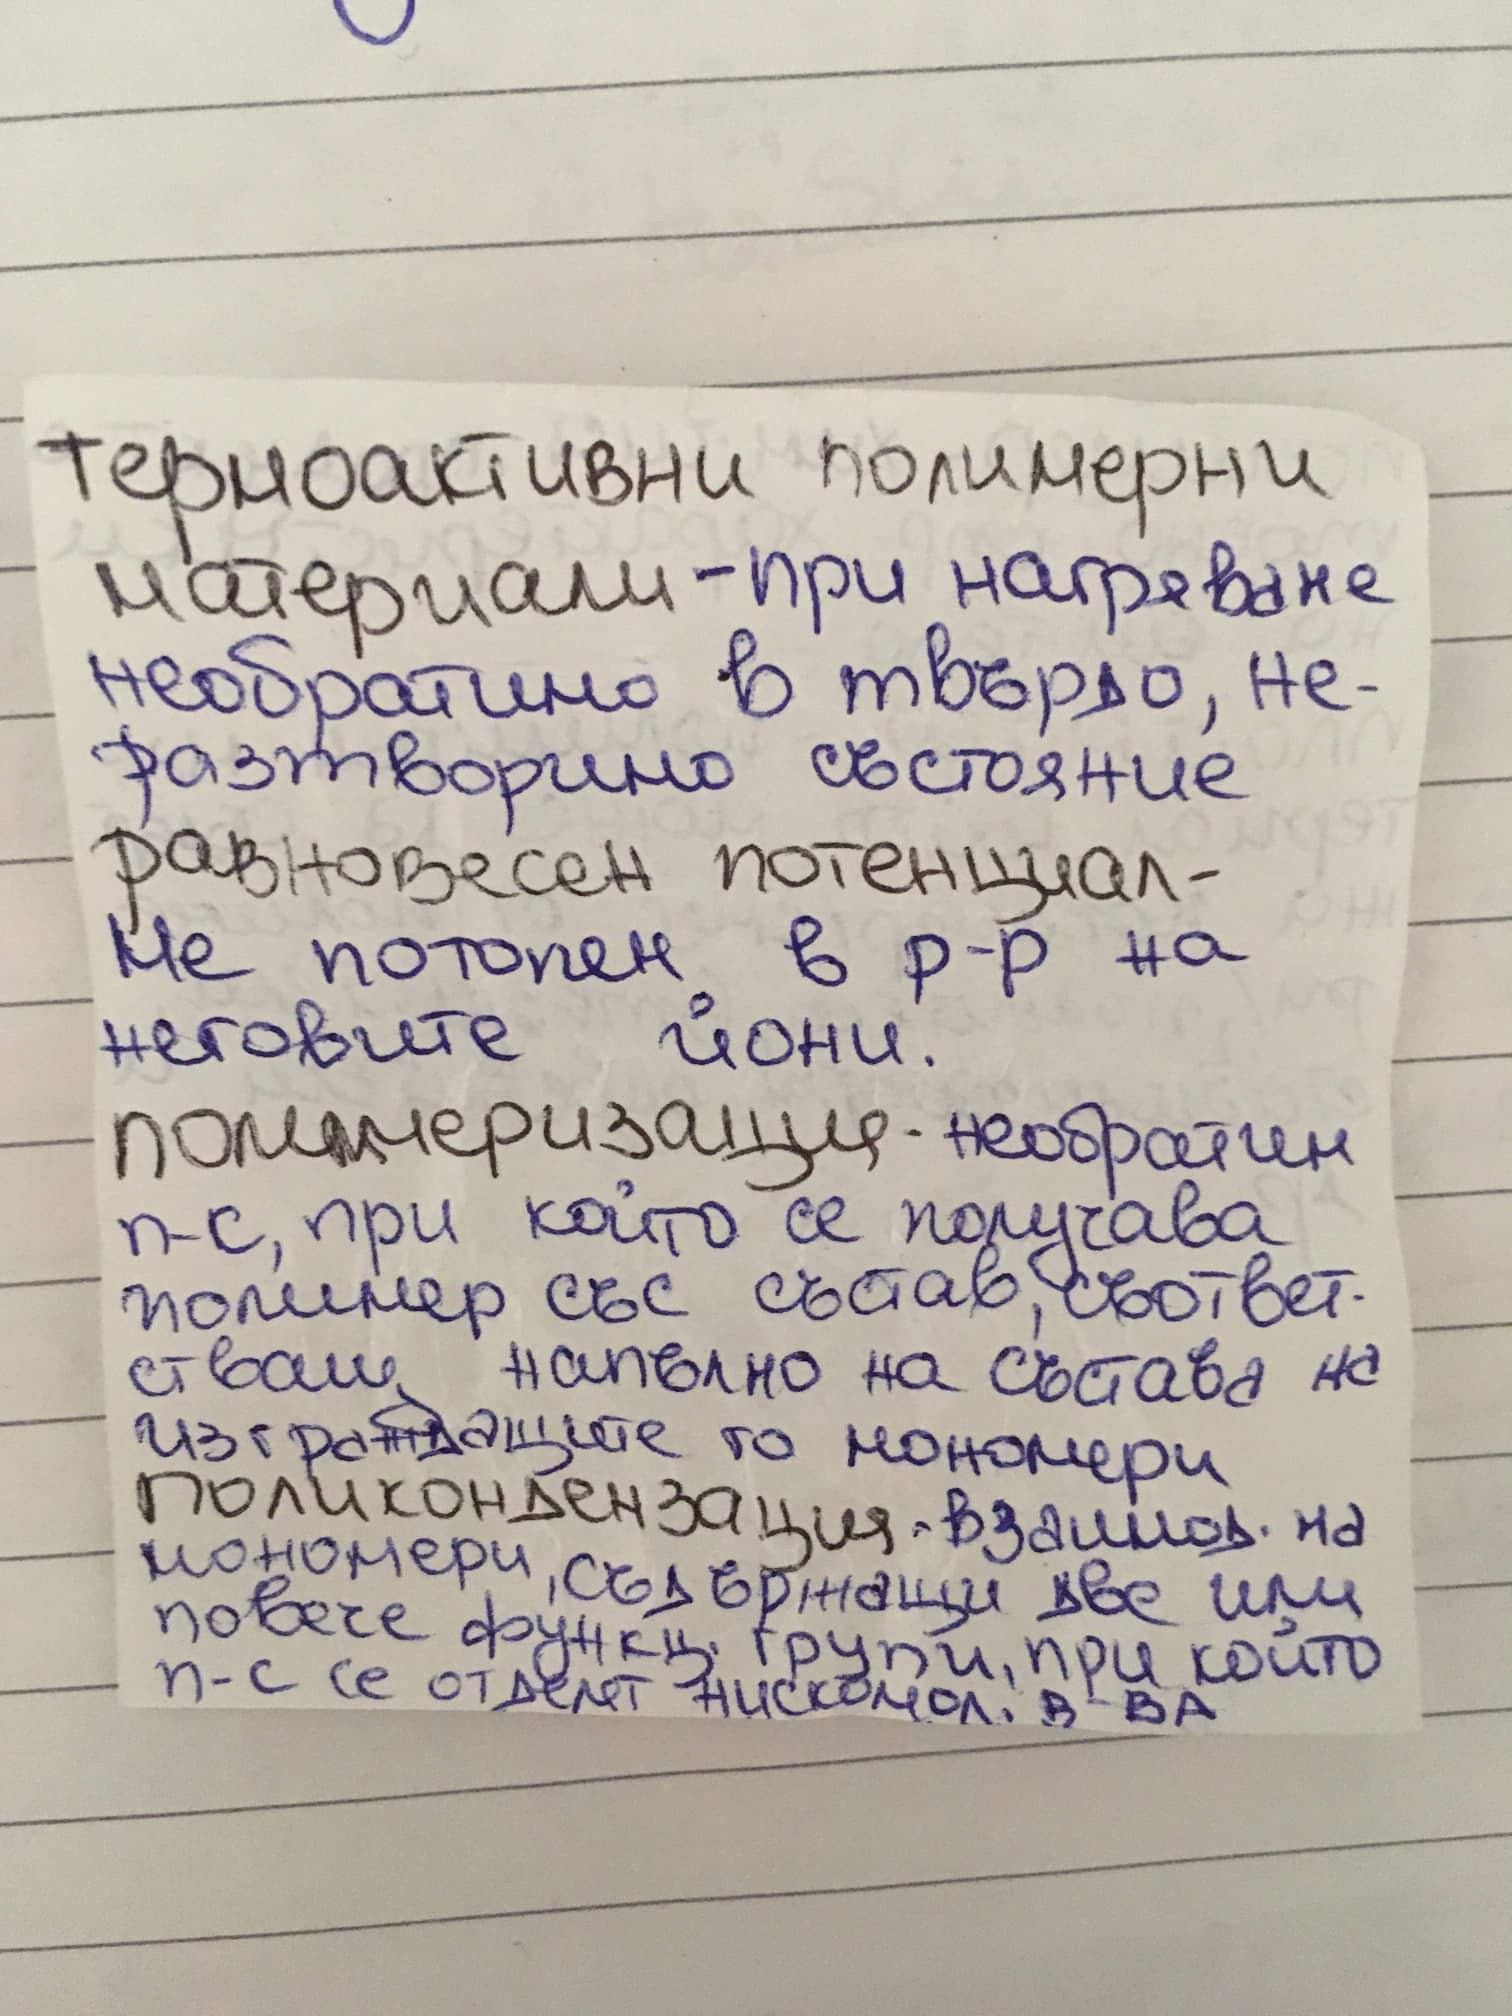 термоактивни полимерни
материали - при нагряване
необратимо в твърдо, не-
разтворимо състояние
равновесен потенциал -
Ме потопен в р-р на
неговите йони.
полимеризация - необратим
п-с, при който се получава
полимер със състав, съответ-
стващ напълно на състава на
изграждащите го мономери
поликондензация - взаимод. на
мономери, съдържащи две или
повече функц. групи, при който
п-с се отделят нискомол. в-ва